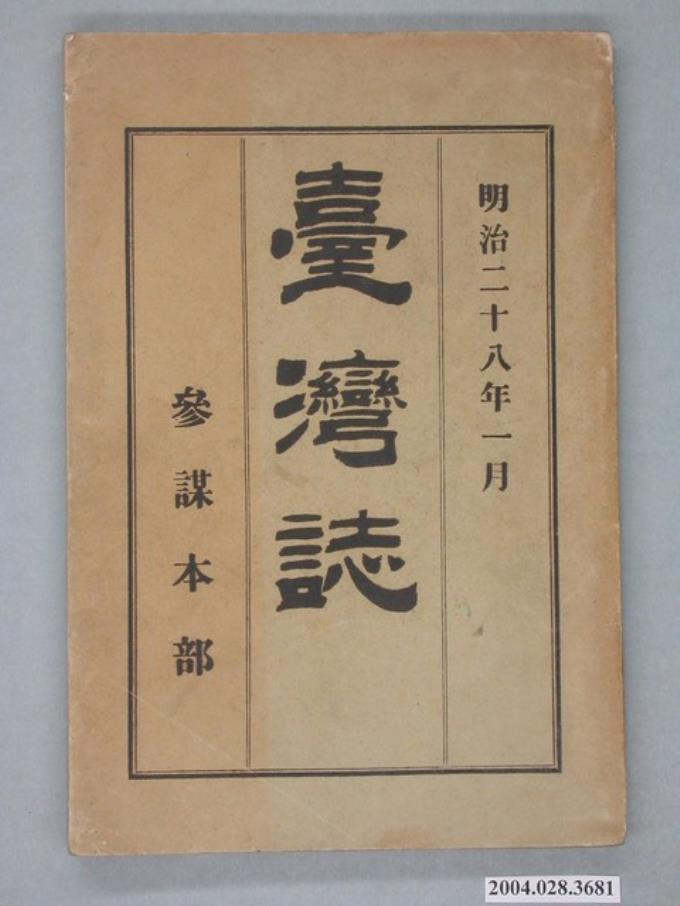 明治二十八年一月
臺灣誌
參謀本部
2004.028.3681